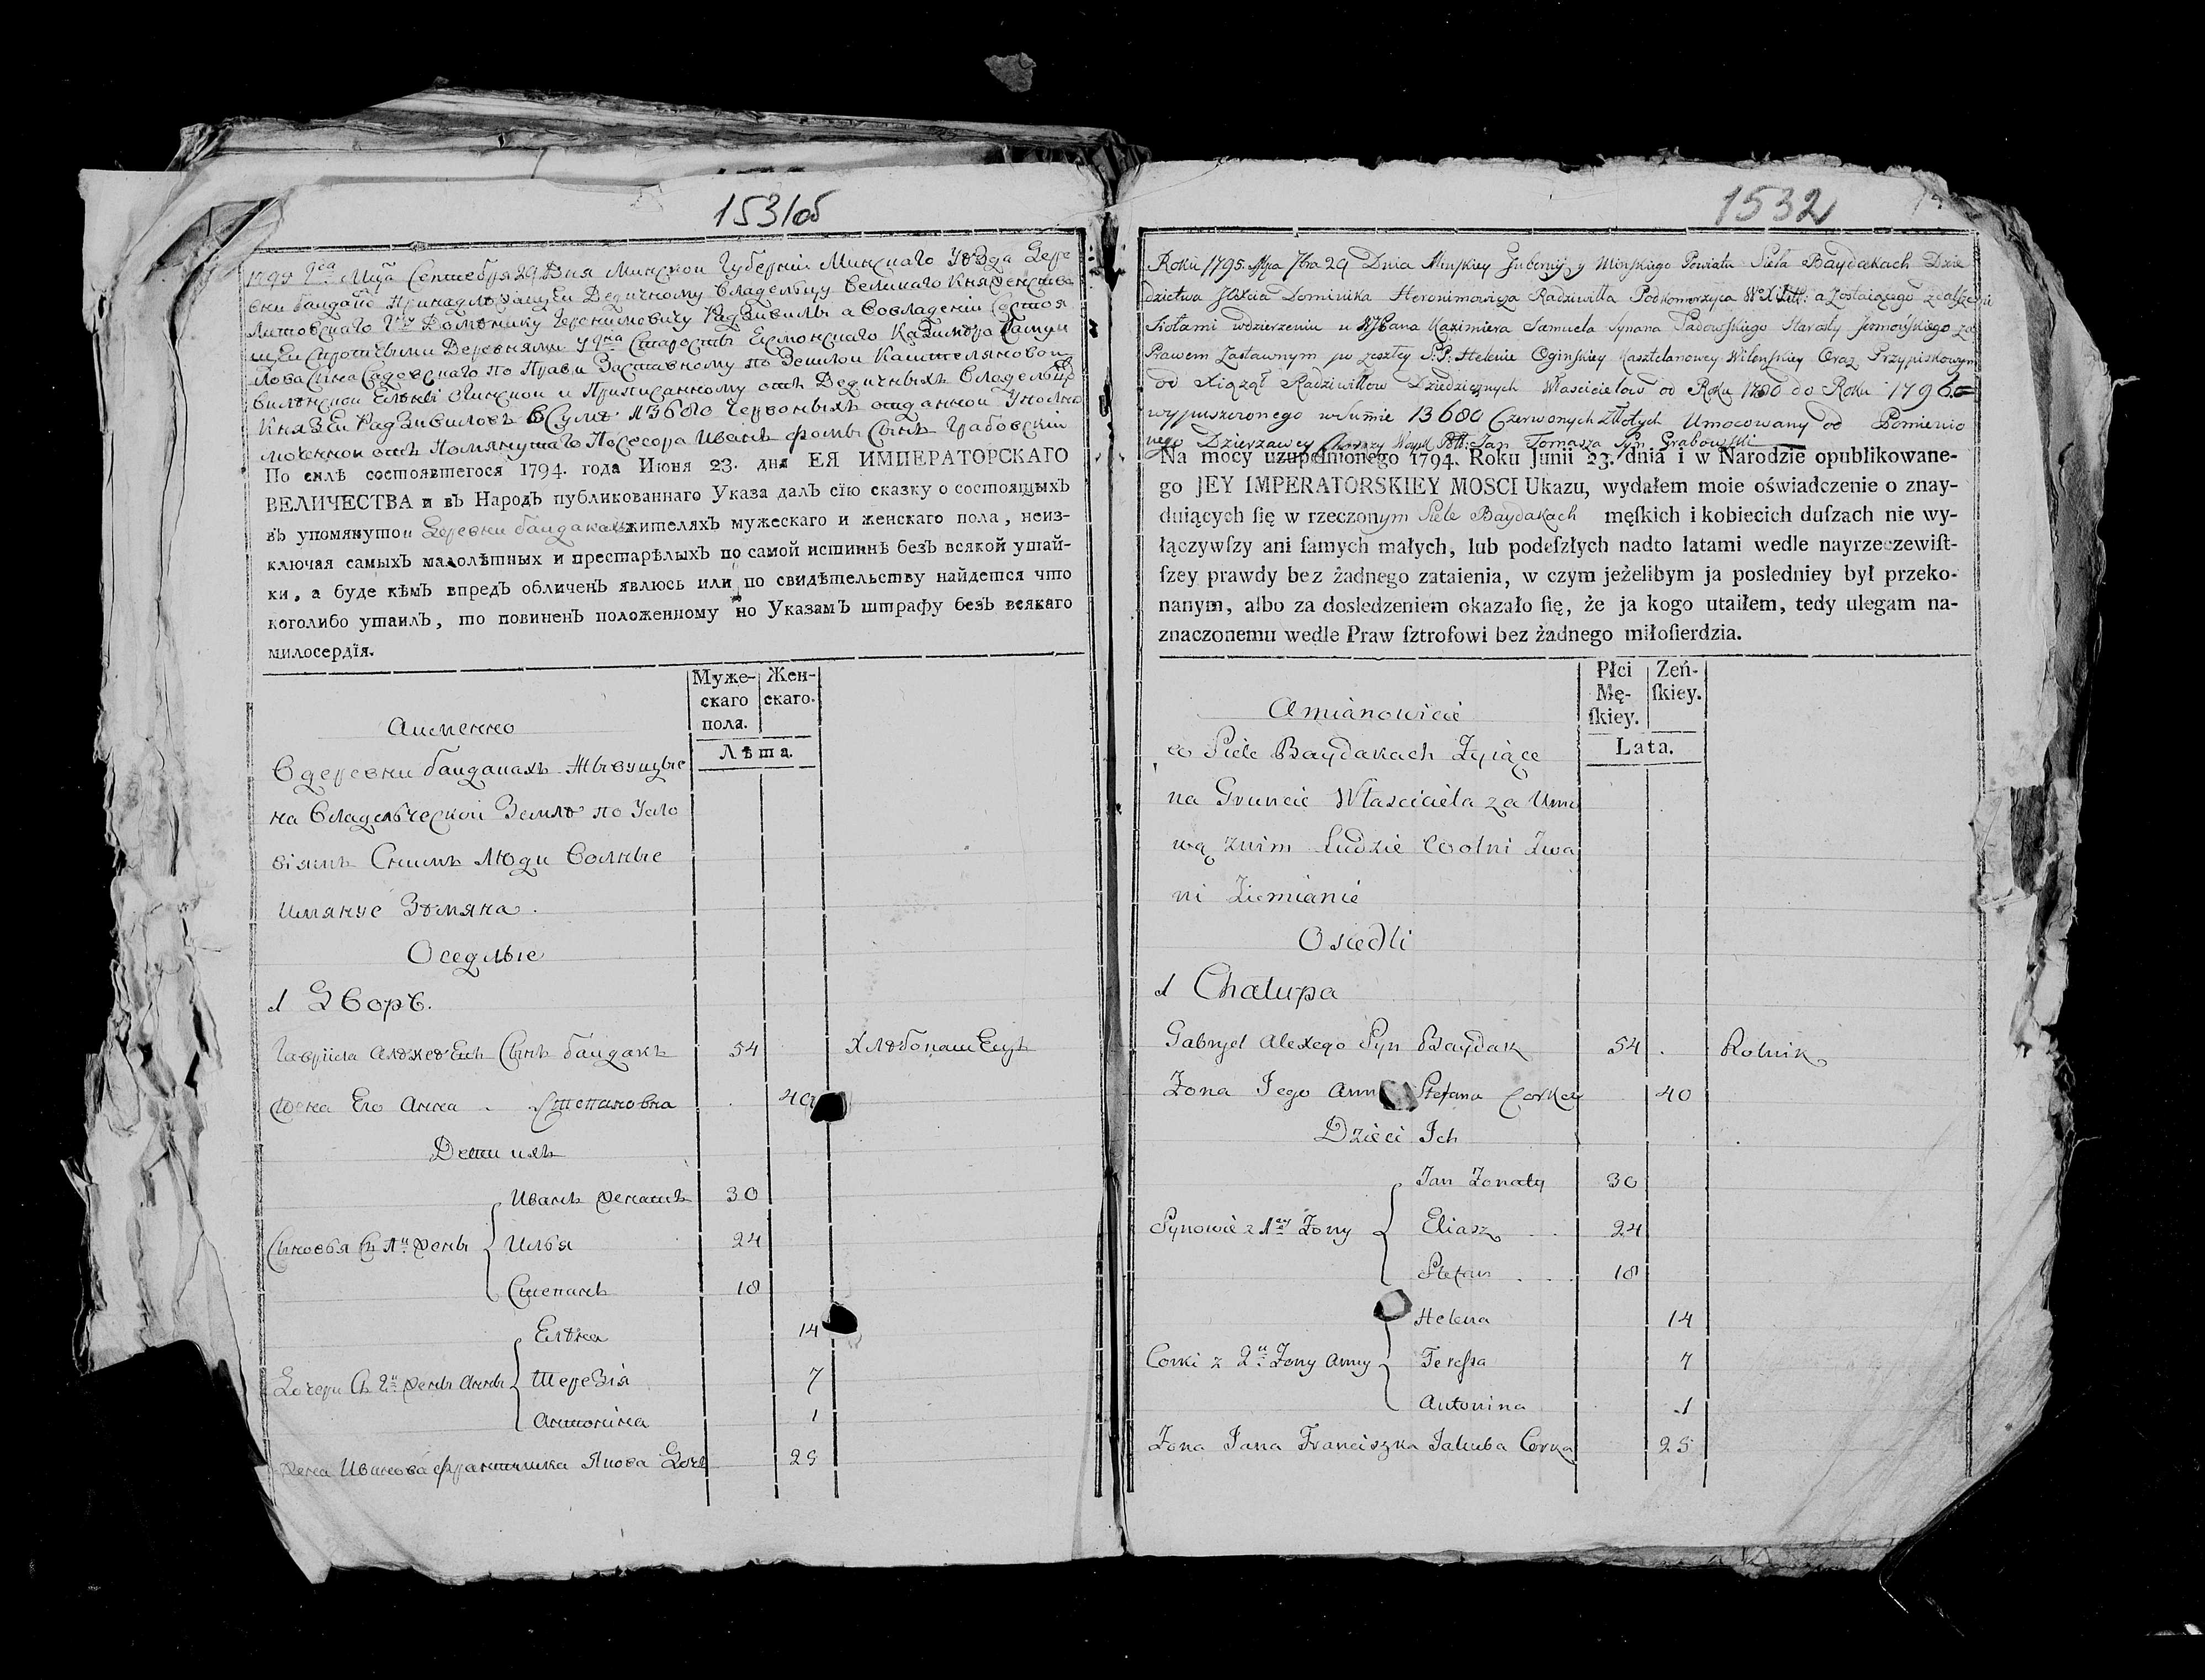 1531об
1795 го. Мца Септебря 29 Дня Минской Губерніи Минскаго Уезда Дере
вни Байдако Принадлежащеи Дедичному Владельцу Великаго Княжества
Литовскаго Домѣнику Іеронимовичу Радзивилы а Совладеніи состоя
щеи спротчими Деревнями у Старосты Казимѣра Самуи
лова Сына Садовскаго по Праву Заставному по Зешлои Каштеляновои
Виленскои Елѣны Огинскои и Приписанному отъ Дедичныхъ Владельцо
Князеи Радзивиловъ в Сумѣ 13680 Червоныхъ отданнои Уполно
моченнои отъ Помянутаго Посесора Иванъ Фомы Сынъ Грабовскіи
По силѣ состоявшегося 1794. года Июня 23. дня ЕЯ ИМПЕРАТОРСКАГО
ВЕЛИЧЕСТВА и въ Народъ публикованнаго Указа далъ сїю сказку о состоящыхъ
въ упомянутои Деревни Байдакахъ жителяхъ мужескаго и женскаго пола, неиз-
ключая самыхъ малолѣтныхъ и престарѣлыхъ по самой истиннѣ безъ всякой утай-
ки, а буде кѣмъ впредъ обличенъ явлюсь или по свидѣтельству найдется что
коголибо утаилъ, то повиненъ положенному по Указамъ штрафу безъ всякаго
милосердїя.
Муже-скаго пола. Жен-скаго.
Лѣта.
Аименно
В деревни Байдакахъ Живущые
на Владельческой Землѣ по Усло
віямъ Снимъ Люди Волные
Имянуе Зѣмяна.
Оседлые
1 Дворъ.
Гаврила Алѣксѣевъ Сынъ Байдакъ 54 Хлѣбопашецъ
Жена Его Анна Степановна 40
Дети ихъ
Иванъ Женатъ 30
Сыновья Съ 1й Жены Илья 24
Степанъ 18
Елѣна 14
Дочери Съ 2й Жены Анны Терезія 7
Антонина 1
Жена Иванова Францишка Янова Дочь 25
1532
Roku 1795. Mca 7bra 29 Dnia Minskiey Gubernij y Minskiego Powiatu Sieła Baydakach Dzie
dzictwa Dominika Heronimowicza Radziwiłła Podkomorzyca a zostaiącego
Siołami wdzierzeniu u Kazimiera Samuela Synana Sadowskiego Starosty
Prawem Zastawnym po zeszłey Helenie Oginskiey Kasztelanowey Wilenskiey Oraz Przypiskowym
od Xiążąt Radziwiłłow Dziedzicznych Własicielow od Roku 1786 do Roku 1796
wypuszczonego w Summie 13680 Czerwonych Złłotych Umocowany od Pomienio
nego Dzierzawcy Chorązy Jan Tomasza Syn Grabowski
Na mocy uzupełnionego 1794. Roku Junii 23. dnia i w Narodzie opublikowane-
go JEY IMPERATORSKIEY MOSCI Ukazu, wydałem moie oświadczenie o znay-
duiących ſię w rzeczonym Siele Baydakach męſkich i kobiecich duſzach nie wy-
łączywſzy ani ſamych małych, lub podeſzłych nadto latami wedle nayrzeczewiſt-
ſzey prawdy bez żadnego zataienia, w czym jeżelibym ja posledniey był przeko-
nanym, albo za dosledzeniem okazało ſię, że ja kogo utaiłem, tedy ulegam na-
znaczonemu wedle Praw ſztrofowi bez żadnego miłoſierdzia.
Płci Mę-ſkiey. Zeń-ſkiey.
Lata.
Amianowicie
w Siele Baydakach Zyiące
na Gruncie Własciciela za Umo
wą znim Ludzie Wolni Zwa
ni Ziemianie
Osiedli
1 Chałupa
Gabryel Alexego Syn Baydak 54 Rolnik
Zona Jego Anna Stefana Corka 40
Dzieci Ich
Jan Zonaty 30
Synowie z 1ey Zony Eliasz 24
Stefan 18
Helena 14
Corki z 2ey Zony Anny Teressa 7
Antonina 1
Zona Jana Franciszka Jakuba Corka 25